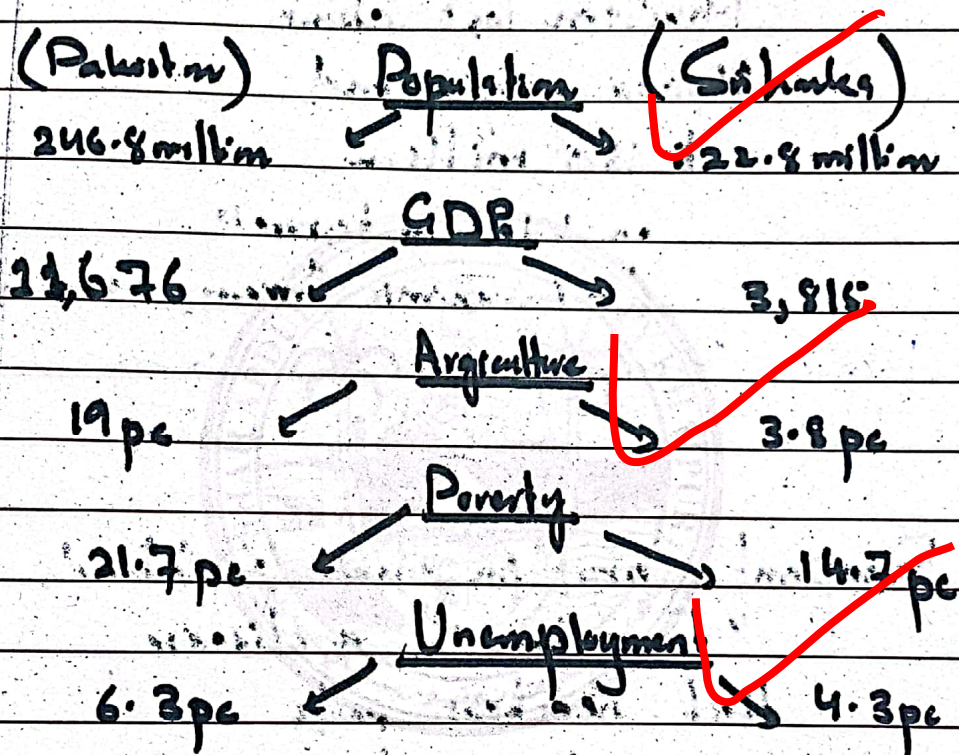 (Pakistan) Population (Sri Lanka)
246.8 million 22.8 million
GDP
11,676 3,815
Argiculture
19 pc 3.8 pc
Poverty
21.7 pc 14.7 pc
Unemployment
6.3pc 4.3pc